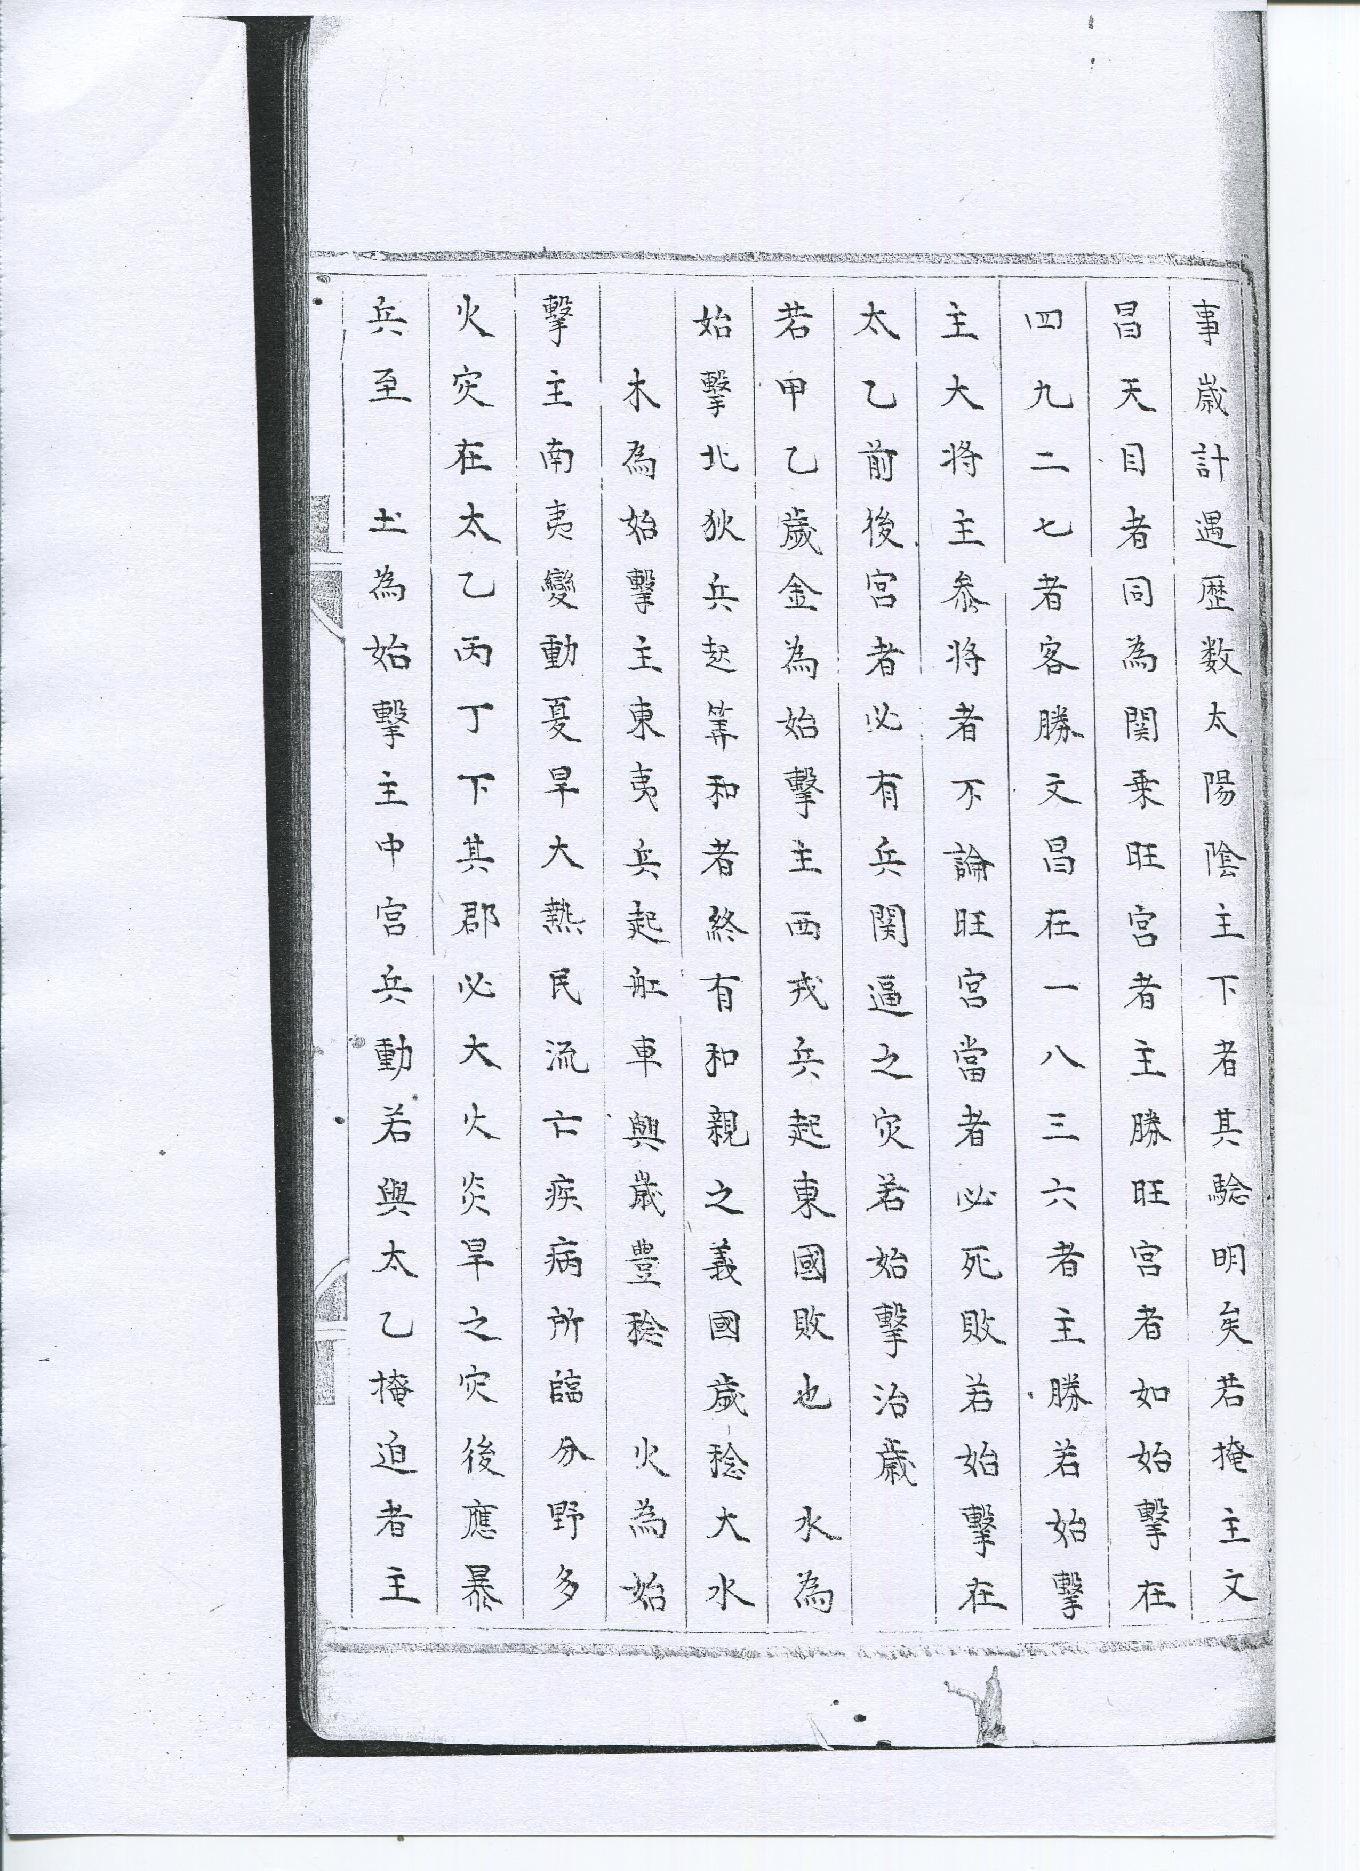 事歳計遇歴数太陽陰主下者其驗明矣若掩主文
昌天目者同為関乗旺宮者主勝旺宮者如始擊在
四九二七者客勝文昌在一八三六者主勝若始擊
主大将主叅将者不論旺宮當者必死敗若始擊在
太乙前後宮者必有兵関逼之灾若始擊治歳
若甲乙歳金為始擊主西戎兵起東國敗也　水為
始擊北狄兵起筭和者終有和親之義國歳稔大水
　木為始擊主東夷兵起舡車興歳豊稔　火為始
擊主南夷變動憂旱大熱民流亡疾病所臨分野多
火灾在太乙丙丁下其郡必大火炎旱之灾後應暴
兵至　土為始擊主中宮兵動若與太乙掩迫者主